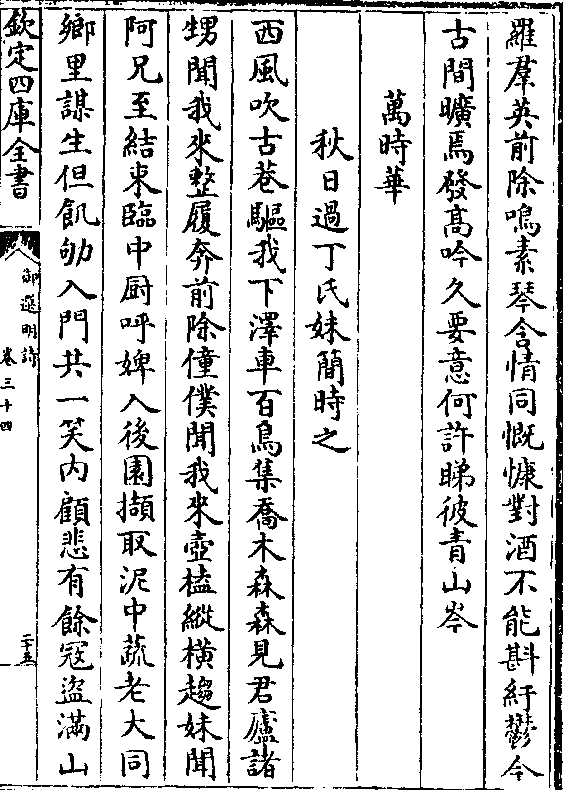 羅羣英前除鳴素琴含情同慨慷對酒不能斟紆鬱今
古間曠焉發高吟久要意何許睇彼青山岑
萬時華
秋日過丁氏妹簡時之
西風吹古巷驅我下澤車百鳥集喬木森森見君廬諸
甥聞我來整履奔前除僮僕聞我來壺榼縱橫趨妹聞
阿兄至結束臨中厨呼婢入後園擷取泥中蔬老大同
鄉里謀生但飢劬入門共一笑内顧悲有餘冦盜滿山
欽定四庫全書
御選明詩
卷三十四
二十五